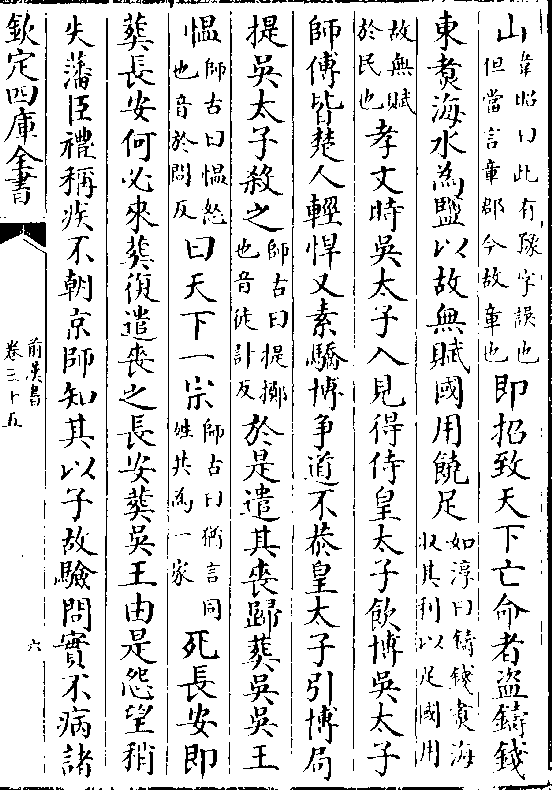 山韋昭曰此有豫字誤也但當言章郡今故章也即招致天下亡命者盗鑄錢
東煑海水為鹽以故無賦國用饒足如淳曰鑄錢煑海収其利以足國用
故無賦於民也孝文時吳太子入見得侍皇太子飲博吳太子
師傅皆楚人輕悍又素驕博争道不恭皇太子引博局
提吳太子殺之師古曰提擲也音徒計反於是遣其喪歸葬吳吳王
愠師古曰愠怒也音於問反曰天下一宗師古曰猶言同姓共為一家死長安即
葬長安何必來葬復遣喪之長安葬吳王由是怨望稍
失藩臣禮稱疾不朝京師知其以子故驗問實不病諸
欽定四庫全書
前漢書
卷三十五
六